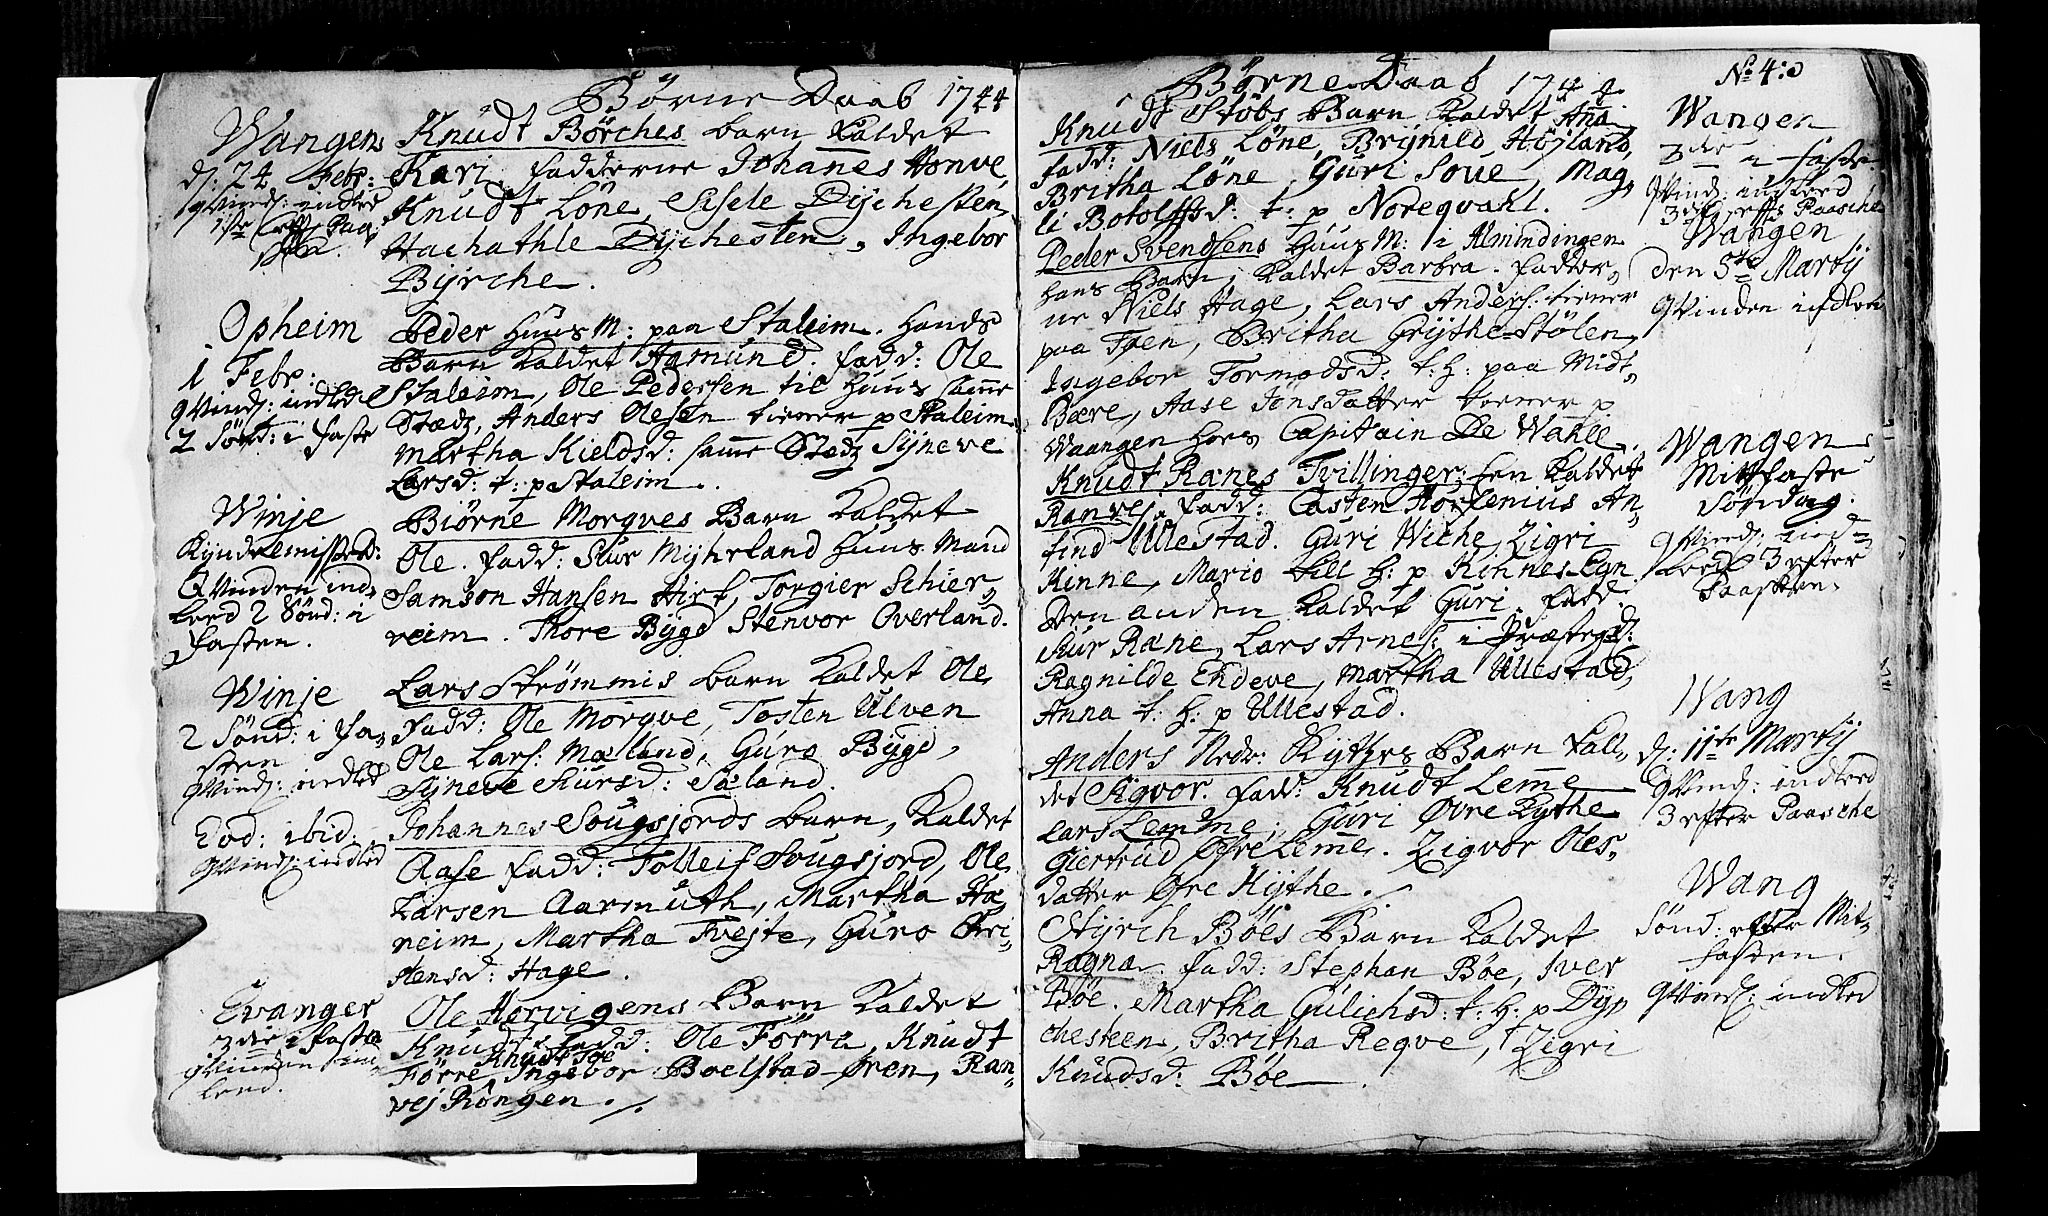 Børne Daab 1744
Wangen
d: 24 Febr:
qvind: indled
1ste efft Paa,
Knudt Børches barn kaldet
Kari. fadderne Johanes Honve,
Knudt Løne, Sisele Dychesten,
Hachathle Dychesten, Ingebor
Byrche.
Opheim
1 Febr:
qvind: indled
2 Sønd: i faste
Peder Huus M: paa Staleim. Hands
Barn kaldet Aamund. fadd: Ole
Staleim, Ole Pedersen til Huus samme
Stædz, Anders Olesen tiener p Staleim.
Martha Kieldsd: samme Stædz Syneve
Larsd: t: p Staleim.
Winje
Kyndelmissed:
Qvinden ind,
leed 2 Sønd: i
fasten.
Biørne Morqves Barn kaldet
Ole. fadd: Siur Myhrland Huus Mand
Samson Hansen Hirt, Torgier Schier,
reim. Thore Bygd Stenvor Overland.
Winje
2 Sønd: i fa,
sten
qvind: indled
Lars Strømmis barn kaldet Ole
fadd: Ole Morqve, Tosten Ulven
Ole Lars: Mælland, Guro Bygd,
Syneve Siursd: Sæland.
Eod: ibid:
qvind: indled
Johannes Sougsjords barn, kaldet
Aase fadd: Tolleif Sougsjord, Ole
Larsen Aarmuth, Martha Hæ
reim, Martha Tvejte, Guro Chri,
stensd: Hage.
Evanger
3die i faste
qvinden ind,
leed.
Ole Horvigens Barn kaldet
Knudt fadd: Ole Førre, Knudt
Knudt Toe
Førre Ingebor Boelstad-øren, Ran,
vej Røngen.
Børne Daab 1744
No 4:
Knudt Støbs Barn kaldet Ana
fadd: Niels Løne, Brynild Højland,
Britha Løne, Guri Soue, Mag,
li Botolfsd: t: p Noreqvahl.
Wangen
3die i faste
qvind: indleed
3die effter Paasche
Peder Svendsens Huus M: i Almindingen
hans Barn, kaldet Barbra. fadder,
ne Niels Hage, Lars Anders: tiener
paa Tven, Britha Grythe-Stølen,
Ingebor Tormodsd: t: H: paa Midt,
Bære, Aase Jønsdatter tiener p
Waangen hos Capitain De Wahle.
Wangen
den 5te Martij
qvinden indleed
Knudt Ranes Tvillinger: een kaldet
Ranvej. fadd: Casten Horsenius An,
find Ullestad. Guri Withe, Zigri
Kinne, Mario till H: p Kinnes Egn
Den anden kaldet Guri. fadd:
Siur Rane, Lars Arnes: i Præstegd:
Ragnilde Endeve, Martha Ullestad,
Anna t: H: p Ullestad.
Wangen
Mittfaste
Søndag.
qvind: ind=
leed 3 efter
Paaschen.
Anders Nedr: Kythes Barn kall,
det Sigvor. fadd: Knudt Lemme
Lars Lemme; Guri Øvre Kythe
Giertrud Øfre Lemme. Zigvor Oles,
datter Øfre Kythe.
Wang
d: 11te Martij
qvind: indleed
3 efter Paasche
Styrch Bøes Barn kaldet
Ragna. fadd: Stephan Bøe, Iver
Bøe. Martha Gulichsd: t: H: p Dy,
chesteen, Britha Reqve, Zigri
Knudsd: Bøe.
Wang
Sønd: efter Mit,
fasten.
qvind: indled